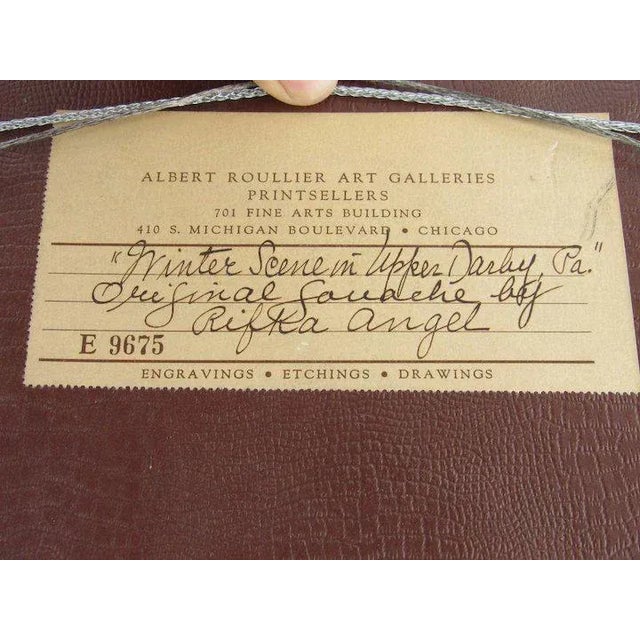 ALBERT ROULLIER ART GALLERIES
PRINTSELLERS
701 FINE ARTS BUILDING
410 S. MICHIGAN BOULEVARD • CHICAGO
"Winter Scene in Upper Darby, Pa."
Original Gouache by
Rifka Angel
E 9675
ENGRAVINGS • ETCHINGS • DRAWINGS